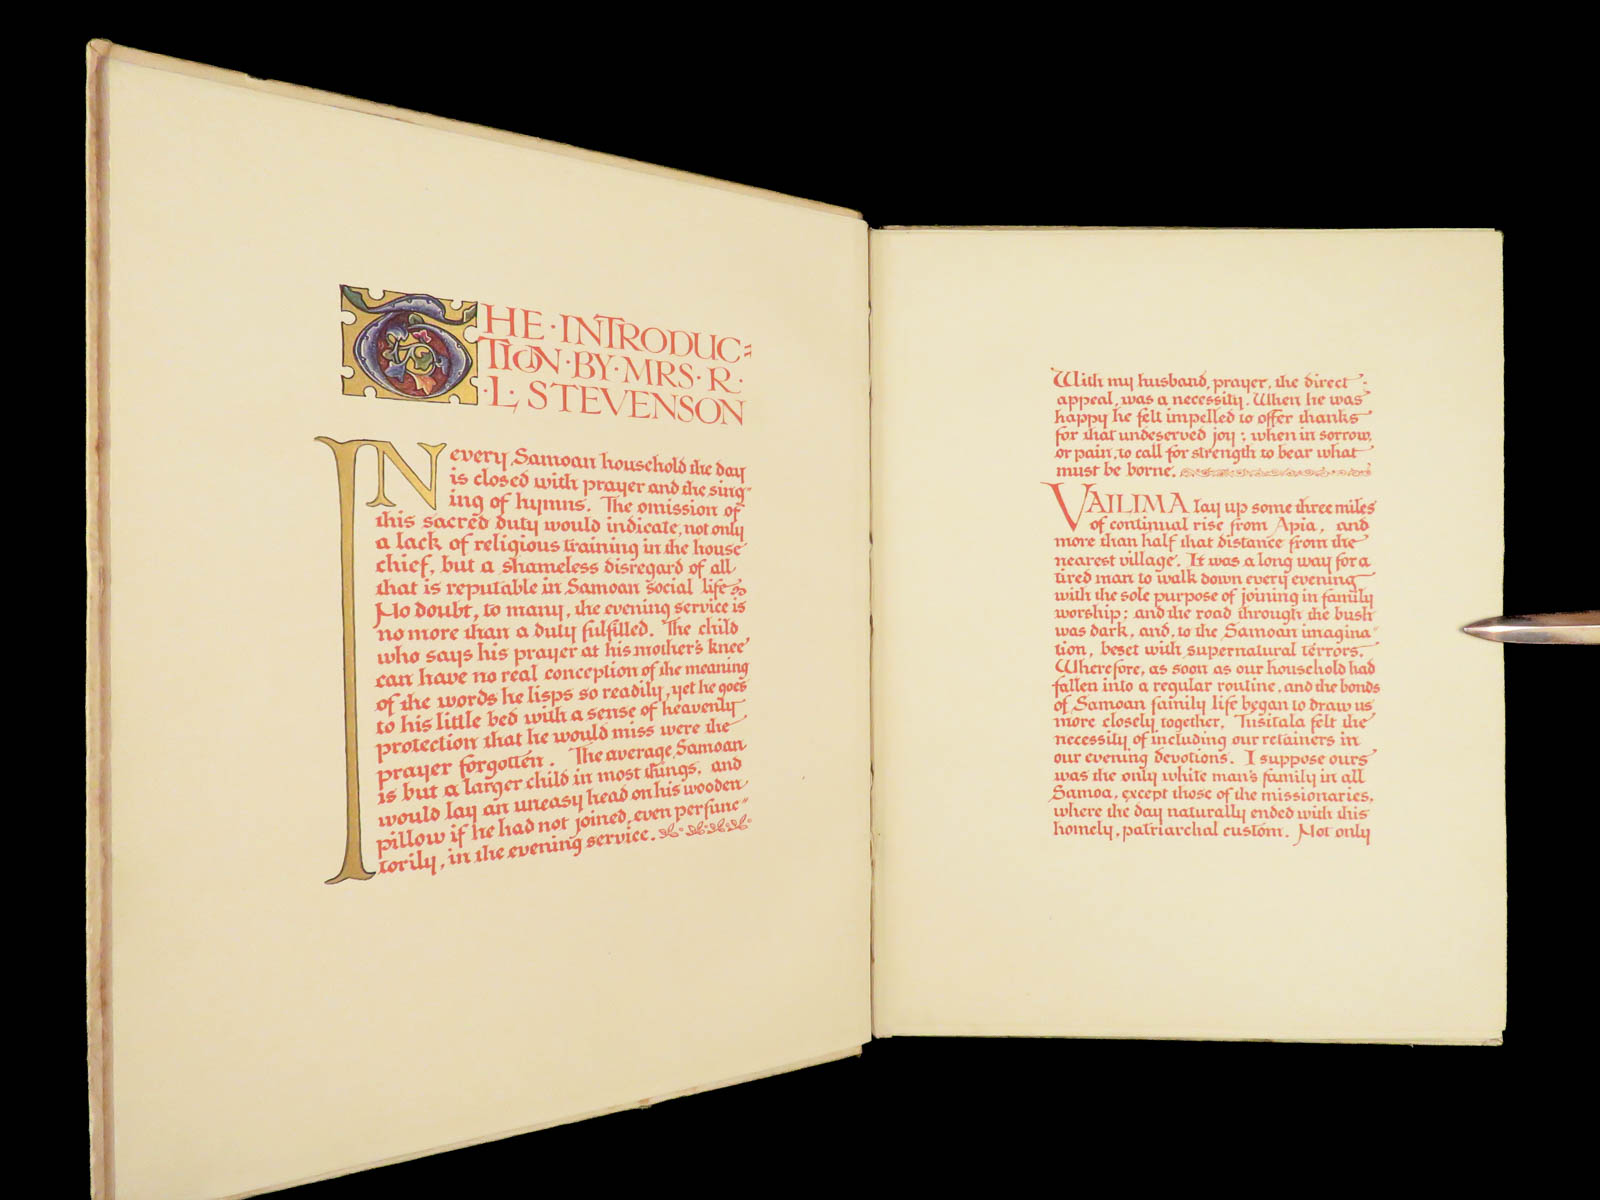 THE · INTRODUC=
TION · BY · MRS · R ·
· L · STEVENSON
IN every Samoan household the day
is closed with prayer and the sing=
ing of hymns. The omission of
this sacred duty would indicate, not only
a lack of religious training in the house
chief, but a shameless disregard of all
that is reputable in Samoan social life
No doubt, to many, the evening service is
no more than a duty fulfilled. The child
who says his prayer at his mother's knee
can have no real conception of the meaning
of the words he lisps so readily, yet he goes
to his little bed with a sense of heavenly
protection that he would miss were the
prayer forgotten. The average Samoan
is but a larger child in most things, and
would lay an uneasy head on his wooden
pillow if he had not joined, even perfunc=
torily, in the evening service.
With my husband, prayer, the direct
appeal, was a necessity. When he was
happy he felt impelled to offer thanks
for that undeserved joy; when in sorrow,
or pain, to call for strength to bear what
must be borne.
VAILIMA lay up some three miles
of continual rise from Apia, and
more than half that distance from the
nearest village. It was a long way for a
tired man to walk down every evening
with the sole purpose of joining in family
worship; and the road through the bush
was dark, and, to the Samoan imagina=
tion, beset with supernatural terrors.
Wherefore, as soon as our household had
fallen into a regular routine, and the bonds
of Samoan family life began to draw us
more closely together, Tusitala felt the
necessity of including our retainers in
our evening devotions. I suppose ours
was the only white man's family in all
Samoa, except those of the missionaries,
where the day naturally ended with this
homely, patriarchal custom. Not only